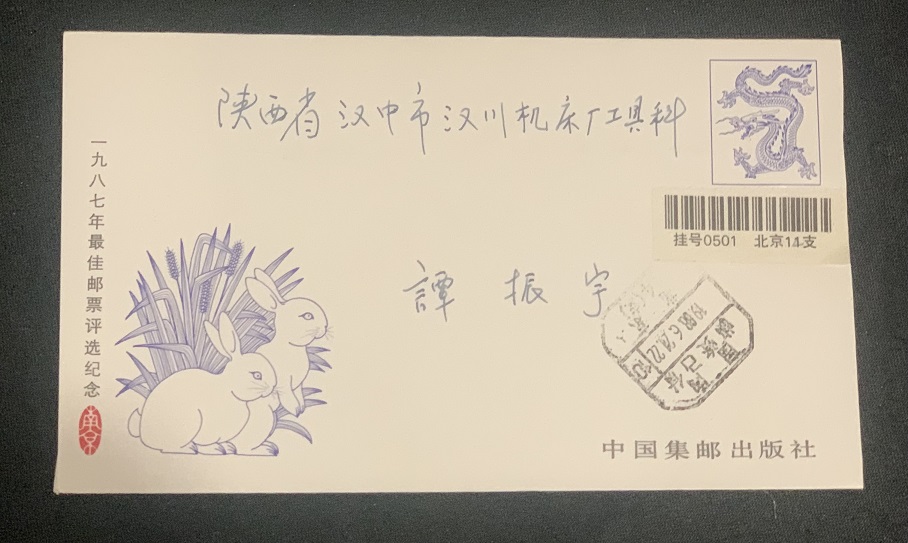 陕西省汉中市汉川机床厂工具科
挂号0501 北京11支
一九八七年最佳邮票评选纪念
南京
譚振宇
国内邮资已付
中国集邮出版社